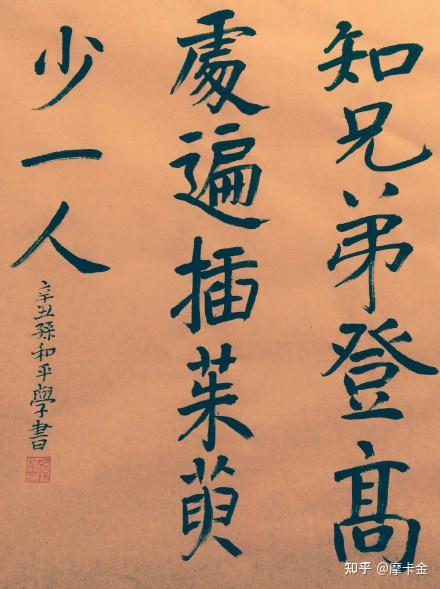 知兄弟登高
處遍插茱萸
少一人
辛丑孫和平學書
知乎 @摩卡金